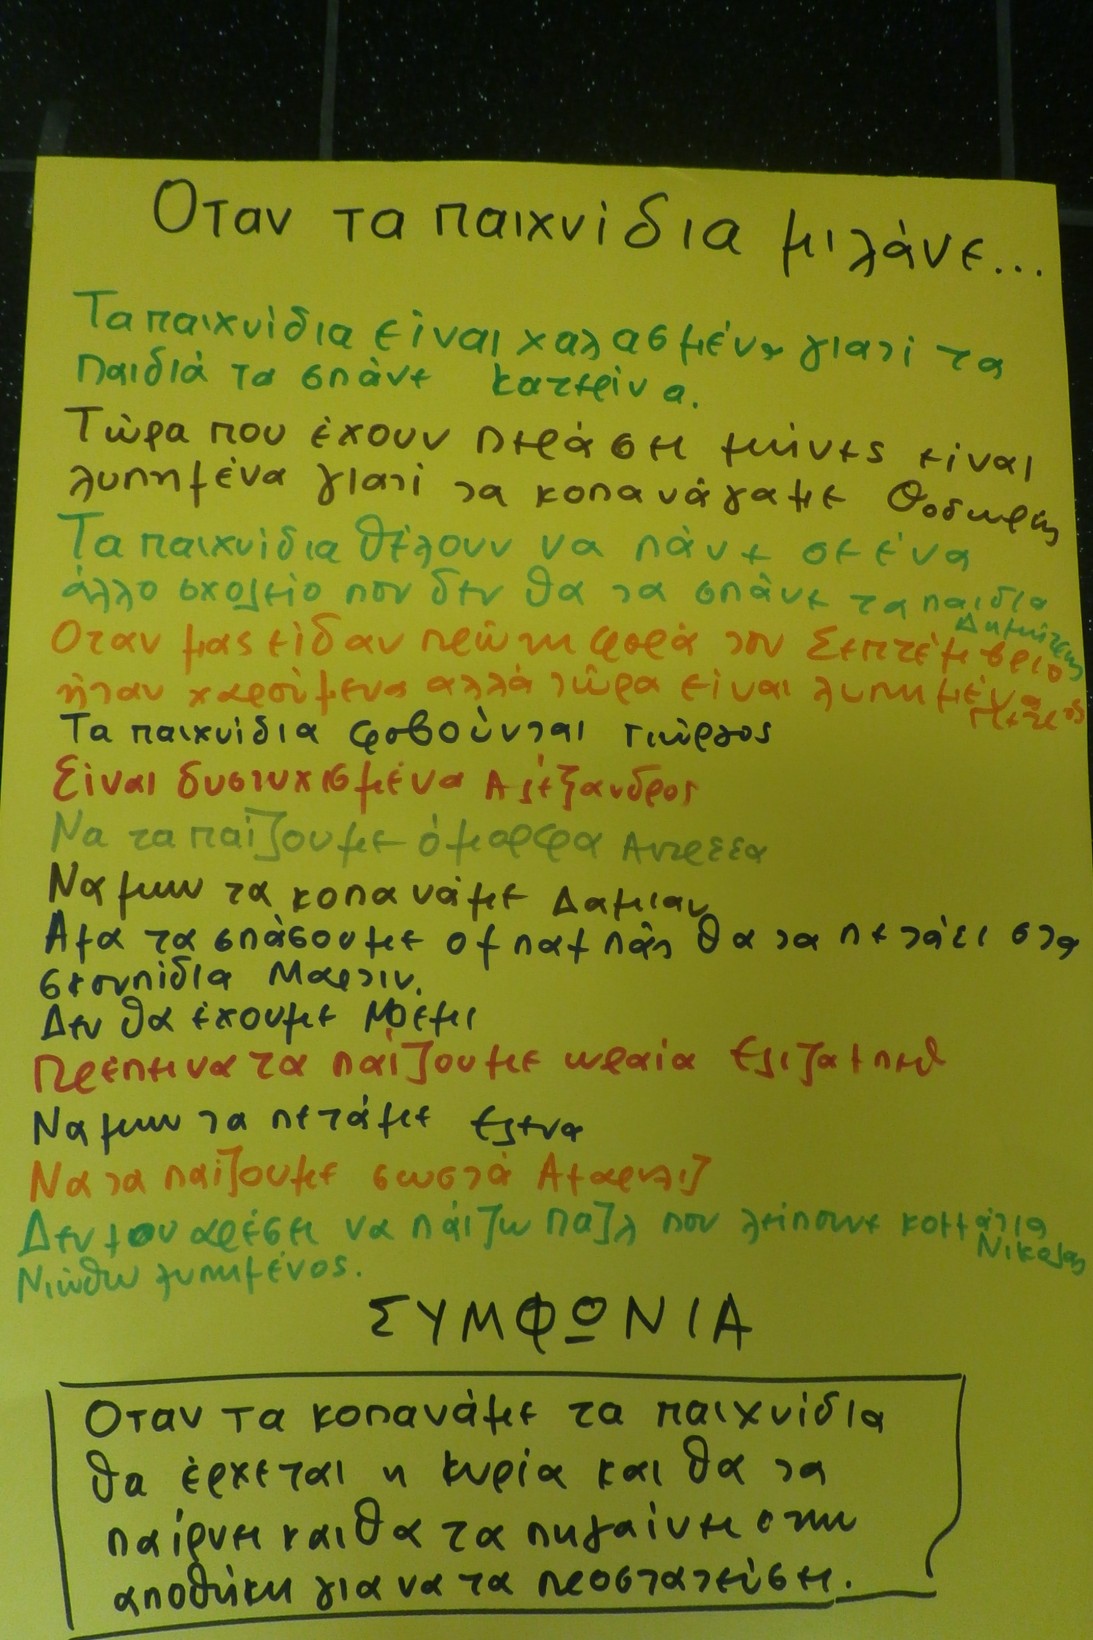 Οταν τα παιχνίδια μιλάνε...
Τα παιχνίδια είναι χαλασμένα γιατί τα
παιδιά τα σπάνε Κατερίνα.
Τώρα που έχουν περάσει μήνες είναι
λυπημένα γιατί τα κοπανάγαμε Θοδωρής
Τα παιχνίδια θέλουν να πάνε σε ένα
άλλο σχολείο που δεν θα τα σπάνε τα παιδια
Δημήτρης
Οταν μας είδαν πρώτη φορά τον Σεπτέμβριο
ήταν χαρούμενα αλλά τώρα είναι λυπημένα
Πέτρος
Τα παιχνίδια φοβούνται Γιώργος
Είναι δυστυχισμένα Αλέξανδρος
Να τα παίζουμε όμορφα Αντρέεα
Να μην τα κοπανάμε Δαμιαν
Αμα τα σπάσουμε ο μπαμπάς θα τα πετάει στα
σκουπίδια Μαρτιν.
Δεν θα έχουμε Μρέμι
Πρέπει να τα παίζουμε ωραία Ελιζαμπεθ
Να μην τα πετάμε Ελενα
Να τα παίζουμε σωστά Αμαρντιζ
Δεν μου αρέσει να πάιζω παζλ που λείπουνε κομμάτια
Νικολας
Νιώθω λυπημένος.
ΣΥΜΦΩΝΙΑ
Οταν τα κοπανάμε τα παιχνίδια
θα έρχεται η κυρία και θα τα
παίρνει και θα τα πηγαίνει στην
αποθήκη για να τα προστατεύσει.